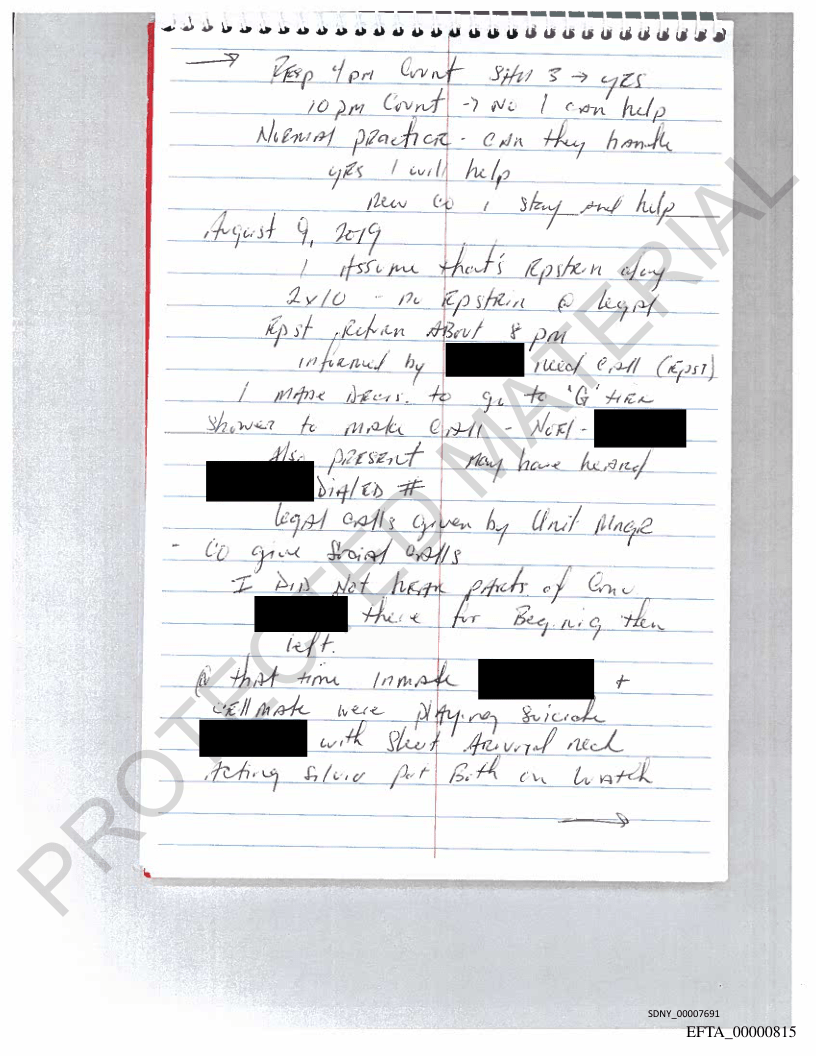 → Resp 4 pm Count SHU 3 → yes
10 pm Count → No I can help
Normal practice - can they handle
yes I will help
new CO I stay and help
August 9, 2019
I Assume that's Epstein
2x10 - no Epstein @ legal
Epst return About 8 pm
informed by need call (Epst)
I made Decis. to go to 'G' tier
shower to make call - Noel -
Also present may have heard
Dialed #
legal calls given by Unit Mngr
- CO give Social calls
I Did Not hear parts of Conv
there for Begining then
left.
@ that time Inmate +
cellmate were playing Suicide
with Sheet Around neck
Acting put Both on Watch
→
PROTECTED MATERIAL
SDNY_00007691
EFTA_00000815